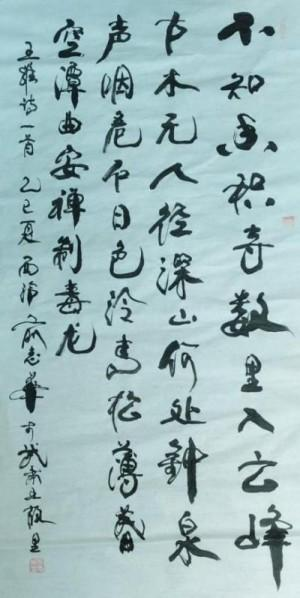 不知香积寺数里入云峰
古木无人径深山何处钟泉
声咽危石日色冷青松薄暮
空潭曲安禅制毒龙
王维诗一首 乙巳夏 西 俞志华